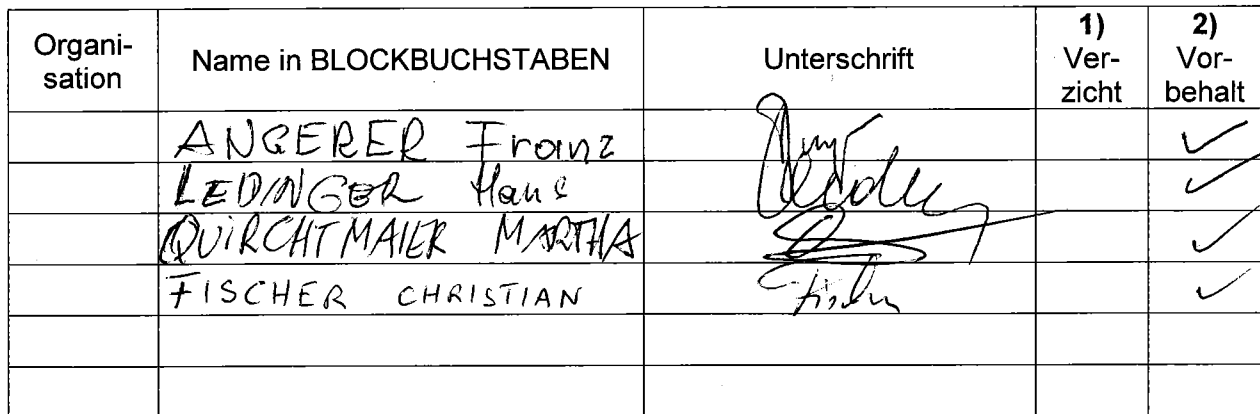 Organi-
sation
Name in BLOCKBUCHSTABEN
Unterschrift
1)
Ver-
zicht
2)
Vor-
behalt
ANGERER Franz
LEDINGER Hans
QUIRCHTMAIER MARTHA
FISCHER CHRISTIAN Fischer